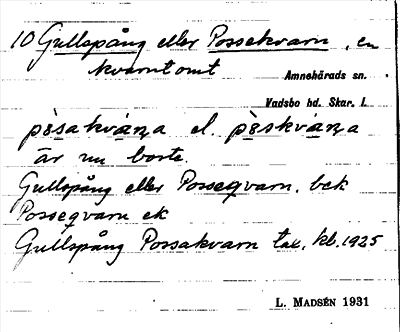 10 Gullspång eller Possekvarn, en
kvarntomt
Amnehärads sn.
Vadsbo hd. Skar. l.
pɵ̀sakvá̱ṉa el. pɵ̀skvá̱ṉa
är nu borte.
Gullspång eller Posseqvarn. bek
Posseqvarn ek
Gullspång Possakvarn tax. kb. 1925
L. MADSÉN 1931